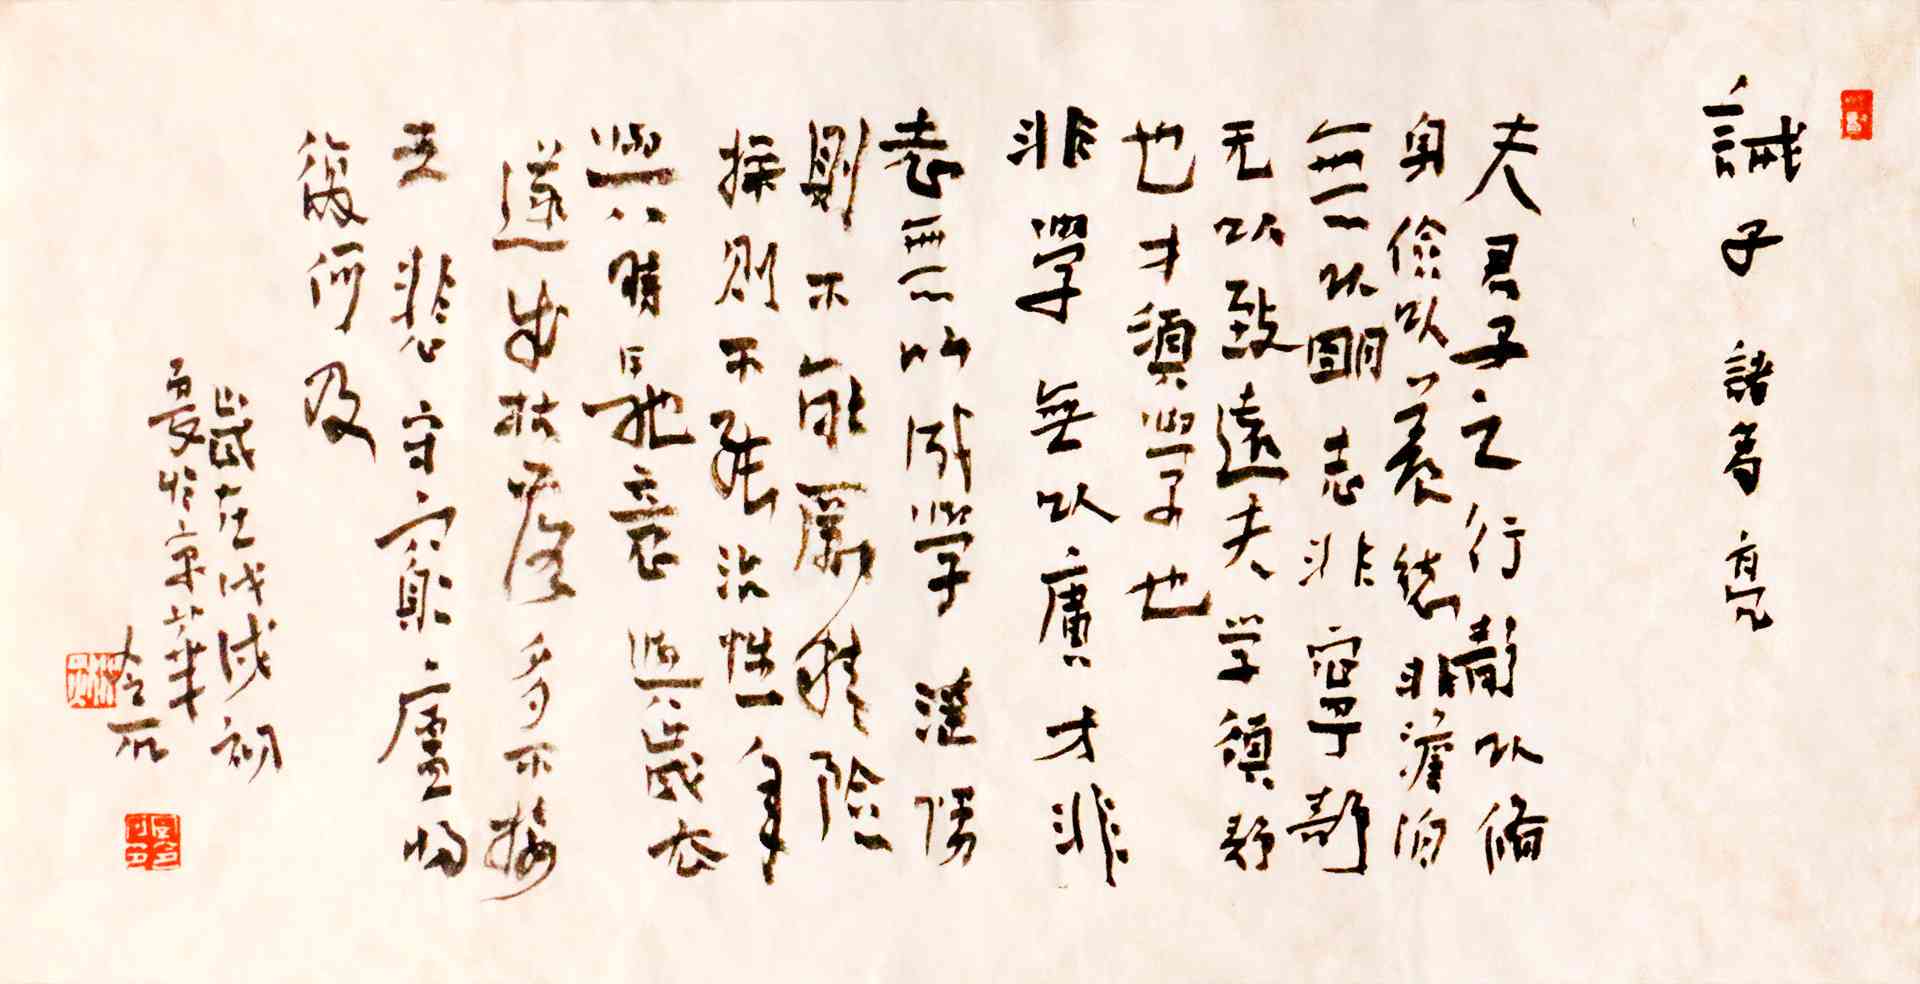 誡子 諸葛亮
夫君子之行靜以脩
身儉以養德非澹泊
無以明志非寧靜
无以致遠夫学須靜
也才須學也
非學無以廣才非
志無以成學淫慢
則不能勵精險
操則不能治性年
與時馳意與歲去
遂成枯落多不接
世悲守窮廬將
復何及
歲在戊戌初
夏於京華
石